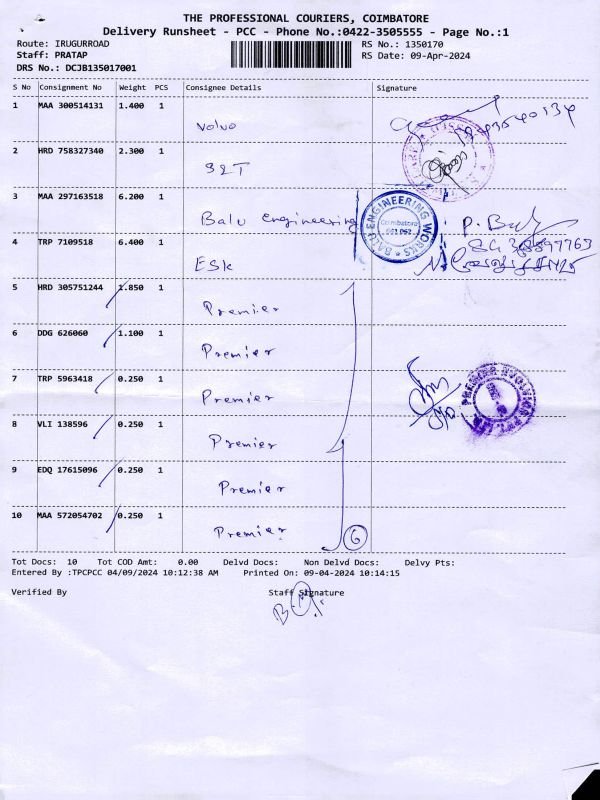 THE PROFESSIONAL COURIERS, COIMBATORE
Delivery Runsheet - PCC - Phone No.:0422-3505555 - Page No.:1
Route: IRUGURROAD
Staff: PRATAP
DRS No.: DCJB135017001
RS No.: 1350170
RS Date: 09-Apr-2024
S No Consignment No Weight PCS Consignee Details Signature
1 MAA 300514131 1.400 1 Volvo
2 HRD 758327340 2.300 1
3 MAA 297163518 6.200 1 Balu engineering
BALU ENGINEERING WORKS
Coimbatore
P. Balu
4 TRP 7109518 6.400 1 ESK
5 HRD 305751244 1.850 1 Premier
6 DDG 626060 1.100 1 Premier
7 TRP 5963418 0.250 1 Premier
8 VLI 138596 0.250 1 Premier
9 EDQ 17615096 0.250 1 Premier
10 MAA 572054702 0.250 1 Premier
6
Tot Docs: 10 Tot COD Amt: 0.00 Delvd Docs: Non Delvd Docs: Delvy Pts:
Entered By :TPCPCC 04/09/2024 10:12:38 AM Printed On: 09-04-2024 10:14:15
Verified By Staff Signature